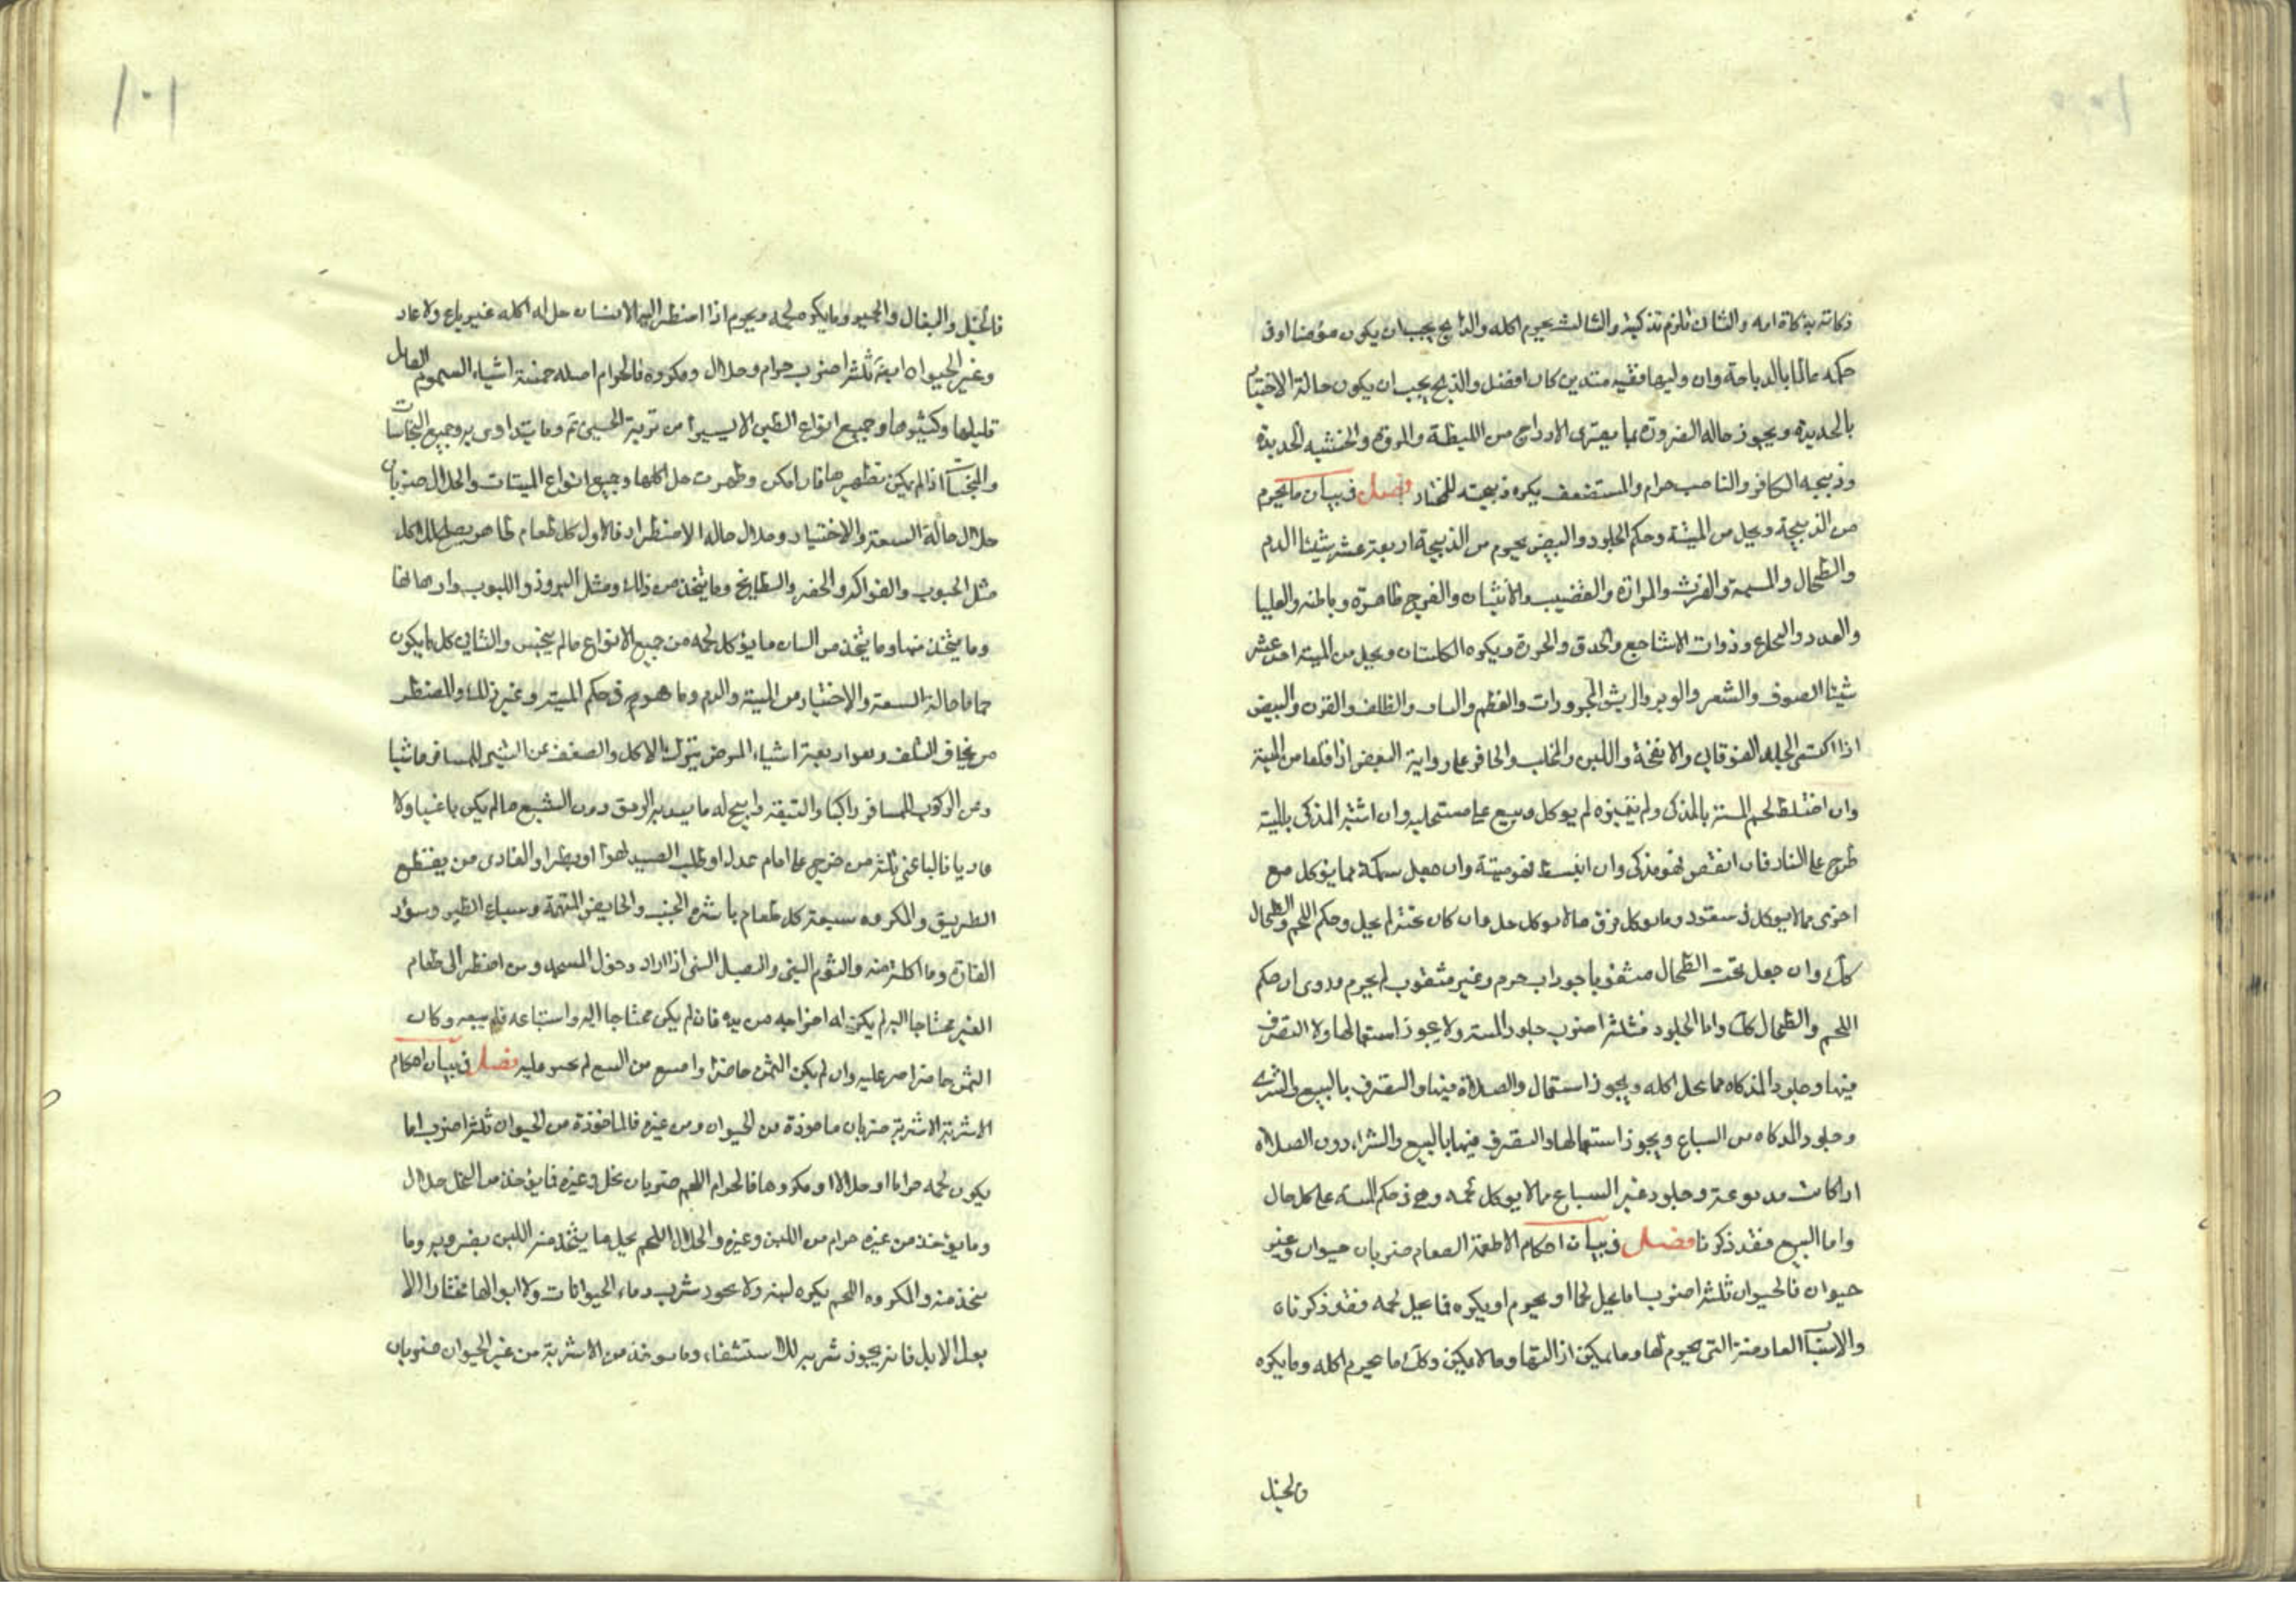 ذكاته بذكاة امه والثانى تلزم تذكيته والثالث يحرم اكله والذابح يجب ان يكون مؤمنا او فى
حكمه عالما بالذباحة وان وليها فقيه متدين كان افضل والذبح يجب ان يكون حالة الاختيار
بالحديدة ويجوز حاله الضرورة بما يفرى الاوداج من الليطة والمروة والخشبه الحديدة
وذبيحه الكافر والناصب حرام والمستضعف يكره ذبيحته للمختار فصل فى بيان ما يحرم
من الذبيحة ويحل من الميتة وحكم الجلود والبيض يحرم من الذبيحة اربعة عشر شيئا الدم
والطحال والمسيمة والفرث والمرارة والقضيب والانثيان والفرج ظاهره وباطنه والعليا
والغدد والنخاع وذوات الاشاجع والحدق والخرزة ويكره الكليتان ويحل من الميتة احد عشر
شيئا الصوف والشعر والوبر والريش المجزورات والعظم والسن والظلف والقرن والبيض
اذا اكتسى الجلد الفوقانى والانفحة واللبن والمخلب والحافر على رواية البعض اذا قلعا من الميتة
وان اختلط لحم الميتة بالمذكى ولم يتميزه لم يوكل وبيع على مستحليه وان اشتبه المذكى بالميتة
طرح على النار فان انقبض فهو مذكى وان انبسط فهو ميتة وان جعل سمكة مما يؤكل مع
اخرى مما لا يوكل فى سفود وما يوكل فوق ما لا يوكل حل وان كان تحته لم يحل وحكم اللحم والطحال
كك وان جعل تحت الطحال مثقوبا جوذاب حرم وغير مثقوب لم يحرم وروى ان حكم
اللحم والطحال كك واما الجلود فثلثة اضرب جلود الميتة ولا يجوز استعمالها ولا التصرف
فيها وجلود المذكاه مما يحل اكله ويجوز استعمال والصلاة فيها والتصرف بالبيع والشرى
وجلود المذكاه من السباع ويجوز استعمالها والتصرف فيها بالبيع والشراء دون الصلاة
اذا كانت مدبوغة وجلود غير السباع مما لا يوكل لحمه وهى فى حكم الميتة على كل حال
واما البيع فقد ذكرنا فصل فى بيان احكام الاطعمة الطعام ضربان حيوان وغير
حيوان فالحيوان ثلثة اضرب اما يحل لحما او يحرم او يكره فما يحل لحمه فقد ذكرناه
والاسباب العارضة التى يحرم لها وما يمكن ازالتها وما لا يمكن وكك ما يحرم اكله وما يكره
والخيل
١٠١
فالخيل والبغال والحمير وما يكره لحمه ويحرم اذا اضطر اليه الانسان حل له اكله غير باغ ولا عاد
وغير الحيوان ايضا ثلثة اضرب حرام وحلال ومكروه فالحرام اصله خمسة اشياء السموم القاتل
قليلها وكثيرها وجميع انواع الطين الا يسيرا من تربة الحسين ع وما يتداوى به وجميع النجاسات
والنجسات اذا لم يكن تطهيرها فان امكن وطهرت حل اكلها وجميع انواع الميتات والحلال ضربان
حلال حالة السعة والاختيار وحلال حاله الاضطرار فالاول كل طعام طاهر يصلح للاكل
مثل الحبوب والفواكه والخضر والبطايخ وما يتخذ من ذلك ومثل البزور واللبوب وادهانها
وما يتخذ منها وما يتخذ من البان ما يؤكل لحمه من جميع الانواع ما لم ينجس والثانى كل ما يكون
حراما حالة السعة والاختيار من الميتة والدم وما هو فى حكم الميتة وغير ذلك والمضطر
من يخاف التلف وهو اربعة اشياء المرض بترك الاكل والضعف عن المشى للمسافر ماشيا
وعن الركوب للمسافر راكبا والتقية وابيح له ما يسد به الرمق دون الشبع ما لم يكن باغيا ولا
عاديا فالباغى ثلثة من خرج على امام عدل او طلب الصيد لهوا او بطرا والعادى من يقطع
الطريق والمكروه سبعة كل طعام باشره الجنب والحايض المتهمة وسباع الطير وسؤر
الفارة وما اكلت منه والثوم النى والبصل النى اذا اراد دخول المسجد ومن اضطر الى طعام
الغير محتاجا اليه لم يكن له اخراجه من يده فان لم يكن محتاجا اليه واستباعه فلم يبعه وكان
الثمن حاضرا اصر عليه وان لم يكن الثمن حاضرا وامتنع من البيع لم يجبر عليه فصل فى بيان احكام
الاشربة الاشربة ضربان ماخوذة من الحيوان ومن غيره فالماخوذة من الحيوان ثلثة اضرب اما
يكون لحمه حراما او حلالا او مكروها فالحرام اللحم ضربان نحل وغيره فما يؤخذ من النحل حلال
وما يؤخذ من غيره حرام من اللبن وغيره والحلال اللحم يحل ما يتخذ منه اللبن بضروبه وما
يتخذ منه والمكروه اللحم يكره لبنه ولا يجوز شرب دماء الحيوانات ولا ابوالها مختارا الا
بول الابل فانه يجوز شربه للاستشفاء وما يوخذ من الاشربة من غير الحيوان ضربان